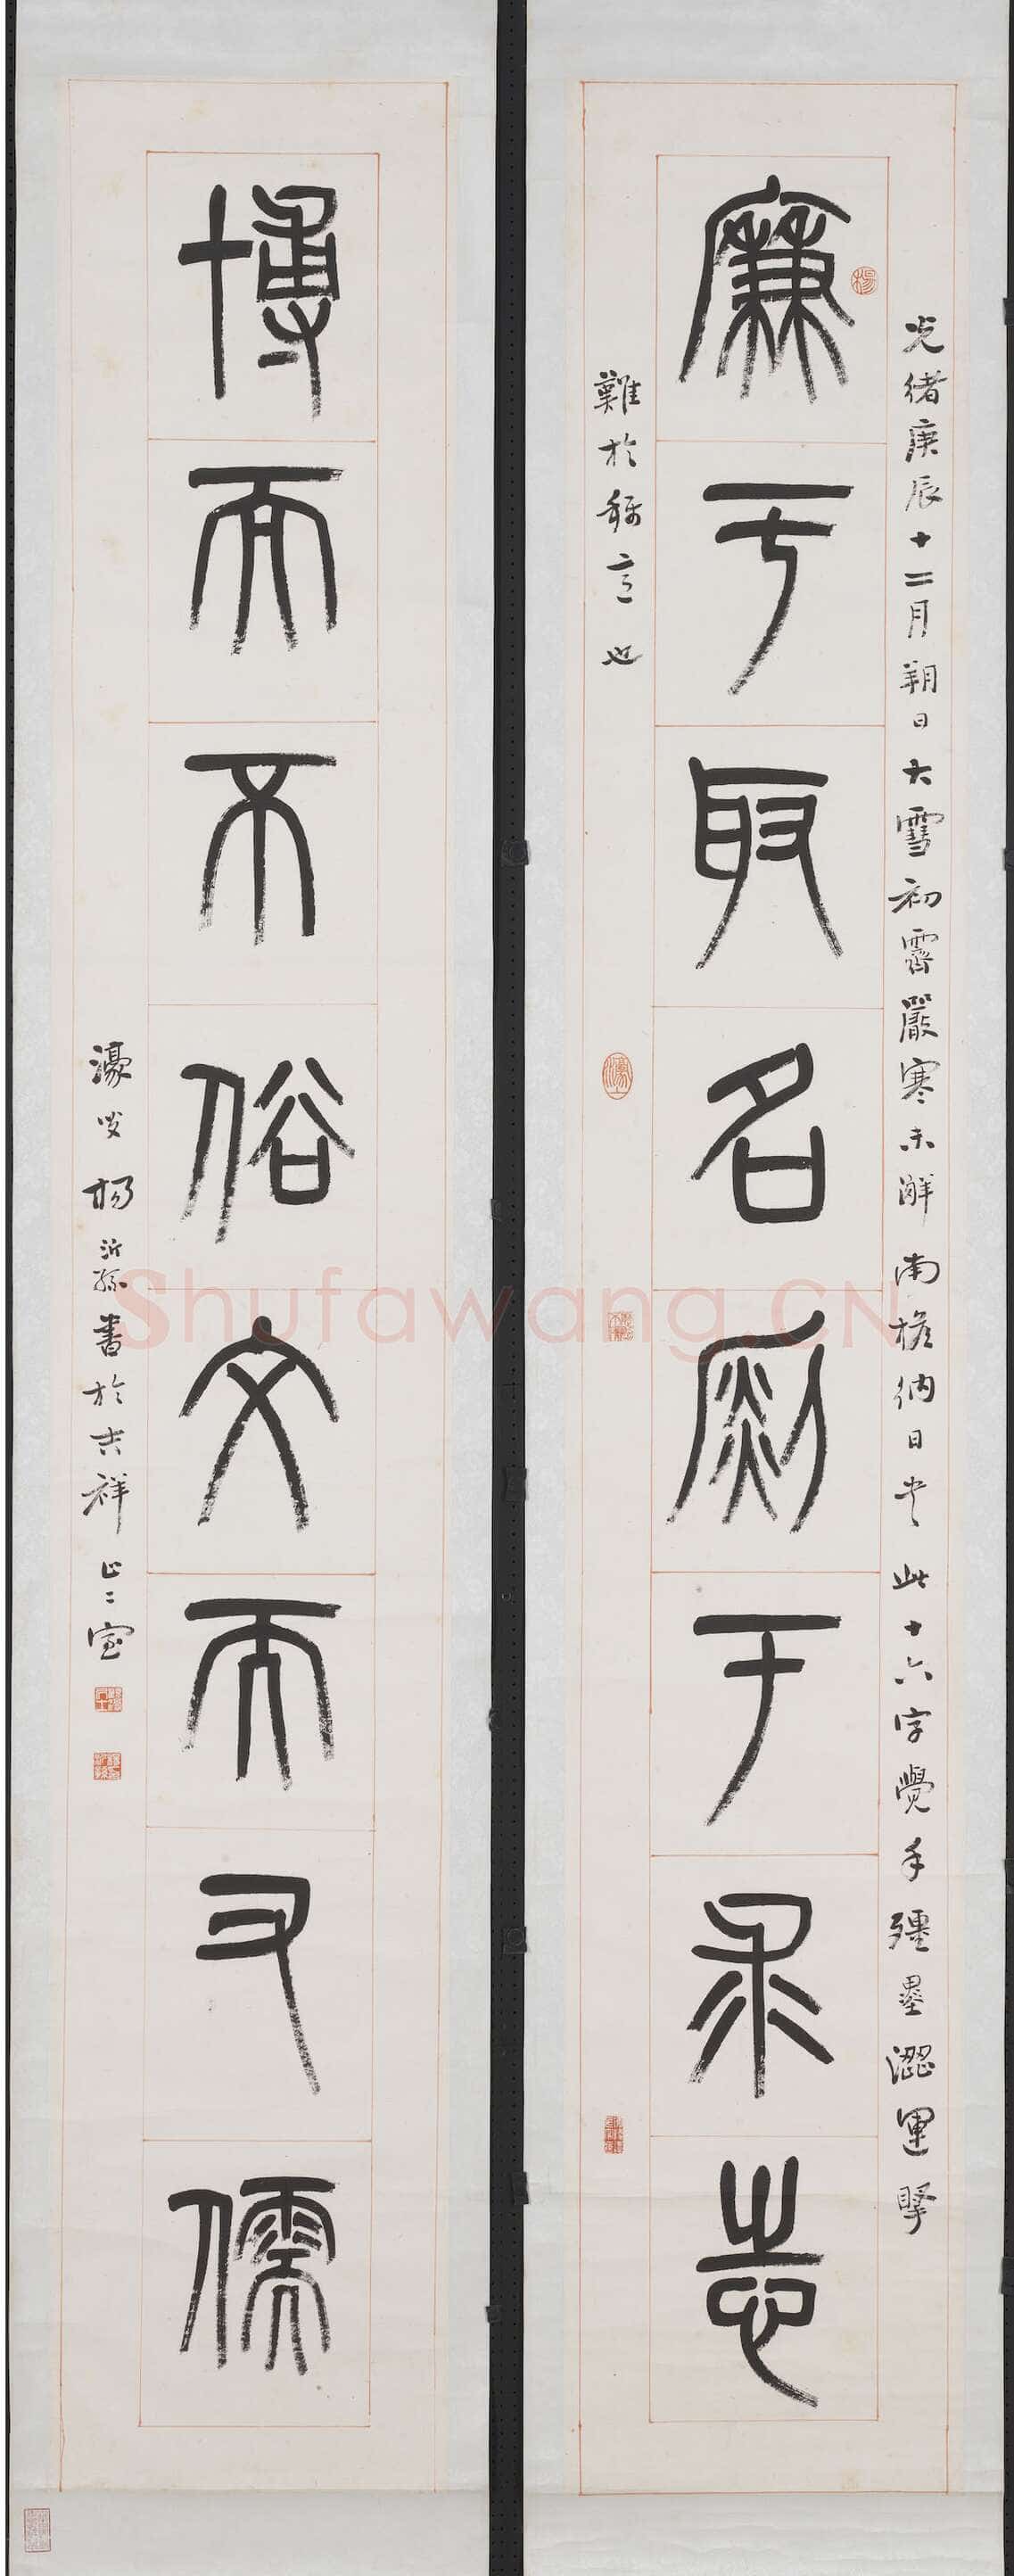 廉于取名銳于求志
光緒庚辰十二月朔日大雪初霽嚴寒未解南檐納日書此十六字覺手殭墨澀運掔
難於稱意也
博而不俗文而又儒
濠叟楊沂孫書於吉祥止二室
楊
Shufawang.CN